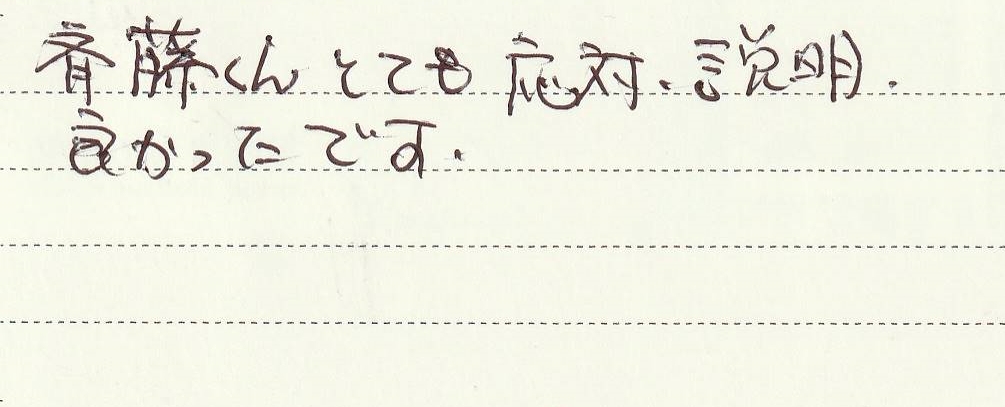 斉藤くんとても応対.説明.
良かったです.